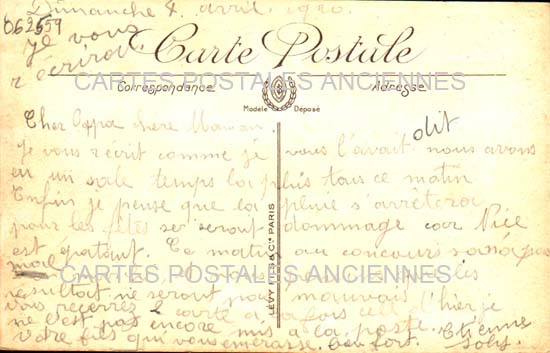 Dimanche 4 avril 1920
062559
Je vous
récrirai
Carte Postale
CARTES POSTALES ANCIENNES
Correspondance
Adresse
Modèle Déposé
Cher Papa chere Maman
dit
Je vous écrit comme je vous l'avait nous avons
eu un sale temps la pluis tous ce matin
Enfin je pense que la pluie s'arrêtera
pour les fêtes se serait dommage car Nice
est épatant. Ce matin au concours
CARTES POSTALES ANCIENNES
mal les
resultat ne seront pas mauvais
vous recevrez carte a la fois celle d'hier je
ne c'est pas encore mis a la poste.
votre fils qui vous embrasse bon fort. Etienne
LÉVY FILS & Cie PARIS